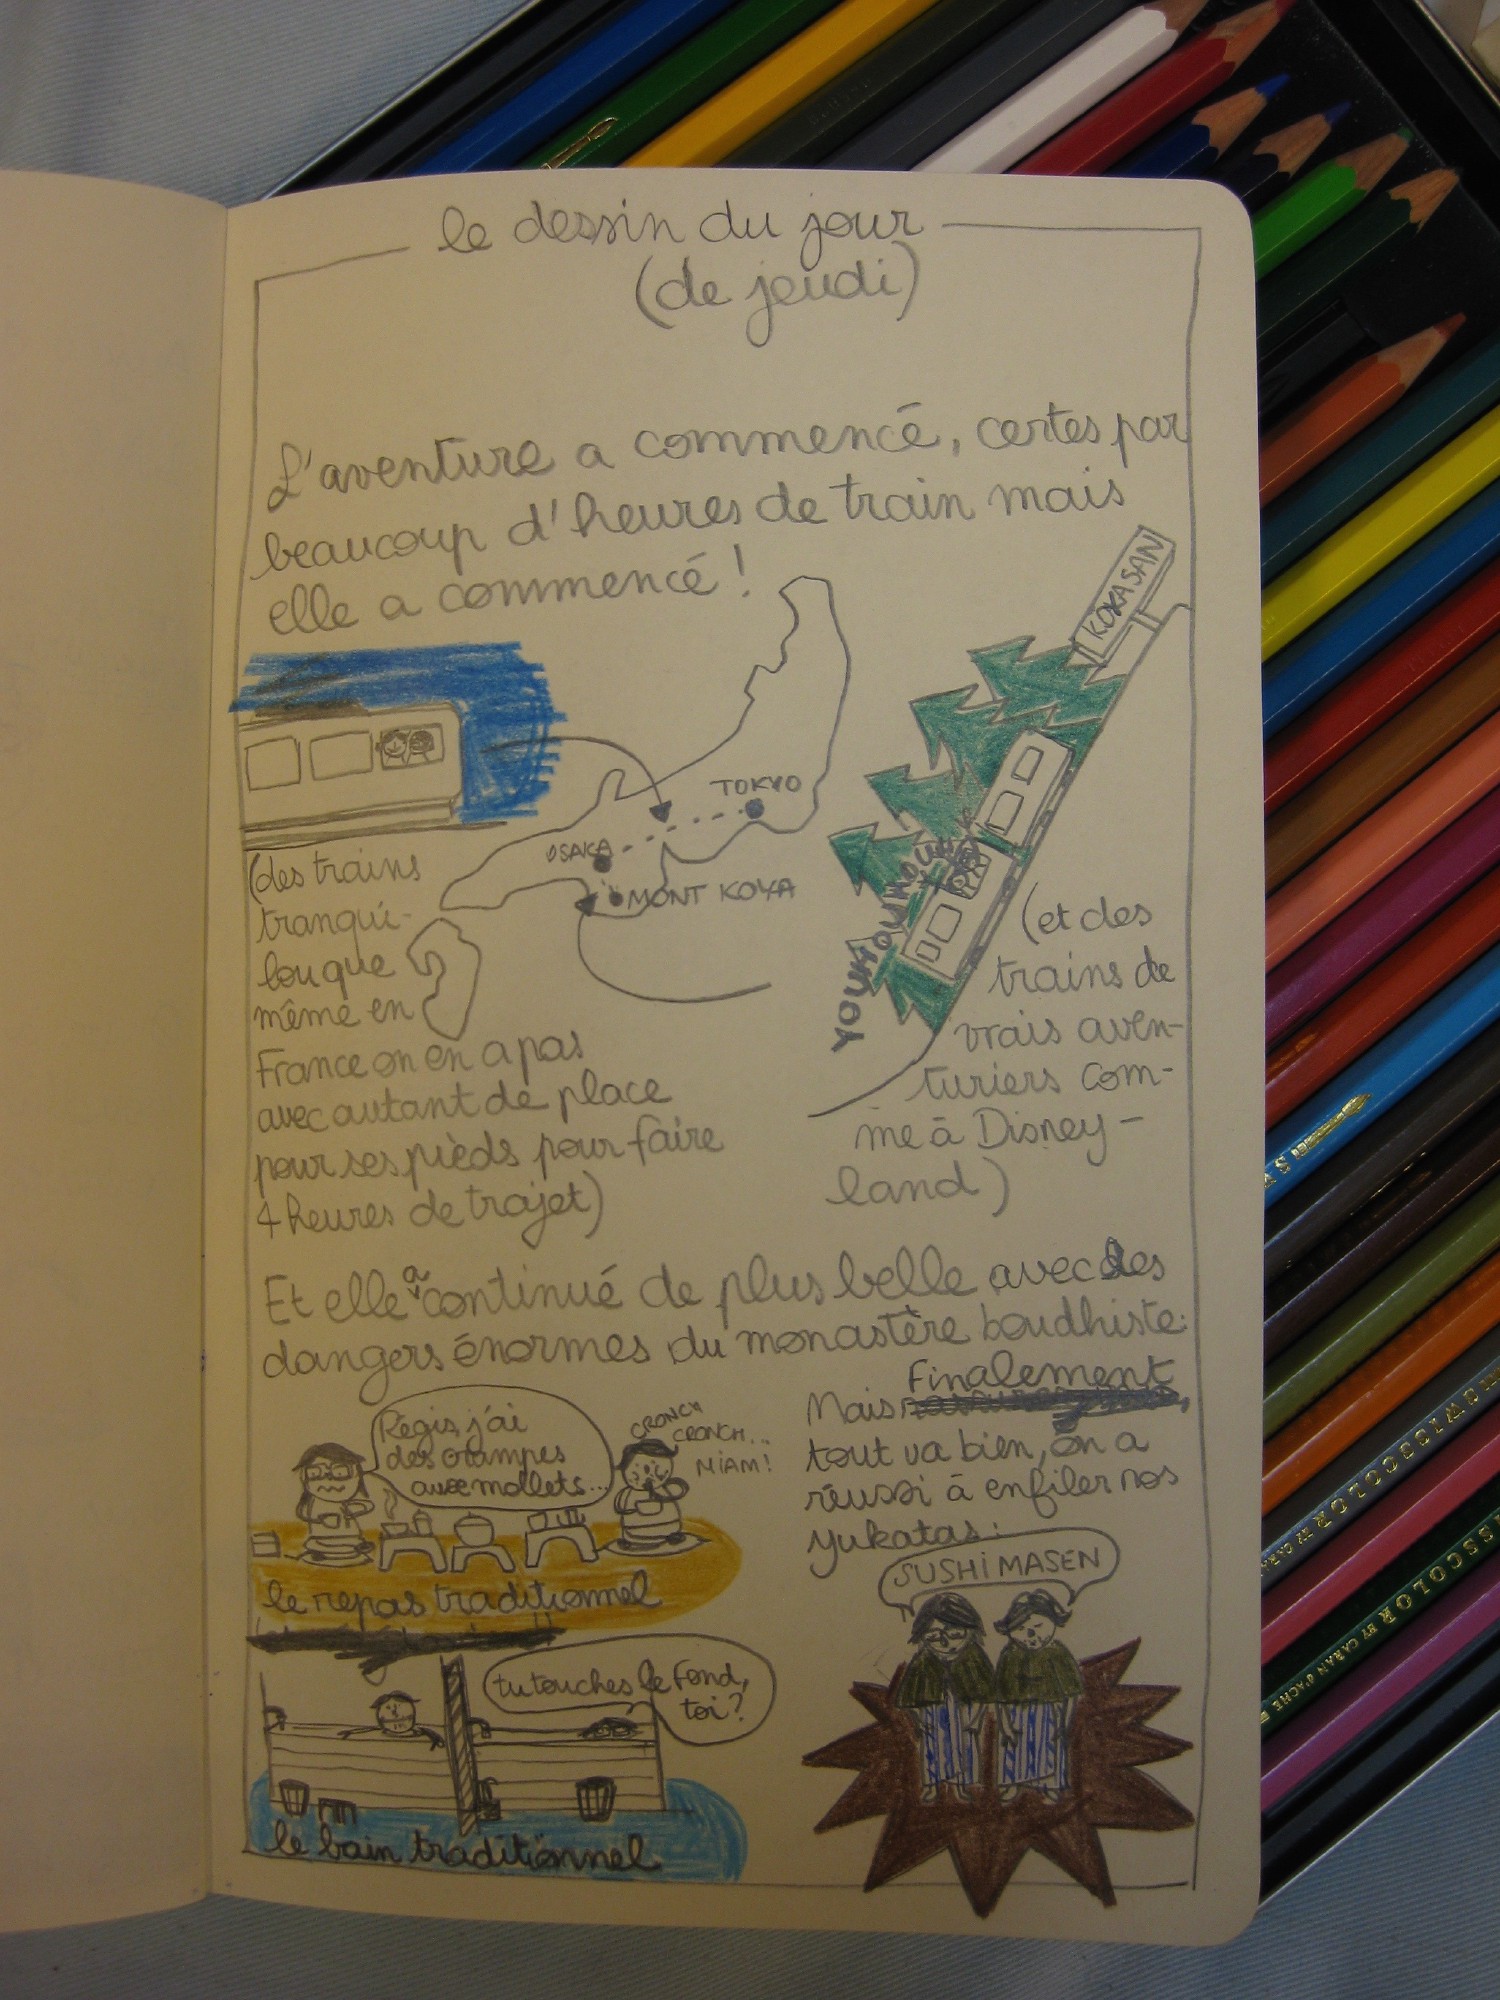 le dessin du jour
(de jeudi)
L'aventure a commencé, certes par
beaucoup d'heures de train mais
elle a commencé !
KOYASAN
TOKYO
OSAKA
MONT KOYA
(des trains
tranqui-
lou que
même en
France on en a pas
avec autant de place
pour ses pièds pour faire
4 heures de trajet)
YOUHOUHOUHOU
(et des
trains de
vrais aven-
turiers com-
me à Disney-
land)
Et elle a continué de plus belle avec les
dangers énormes du monastère boudhiste:
Régis, j'ai
des crampes
aux mollets...
CRONCH
CRONCH...
MIAM!
le repas traditionnel
tu touches le fond,
toi?
le bain traditionnel
Mais finalement,
tout va bien, on a
réussi à enfiler nos
yukatas:
SUSHIMASEN
SWISSCOLOR BY CARAN
SSCOLOR BY CARAN D'ACHE